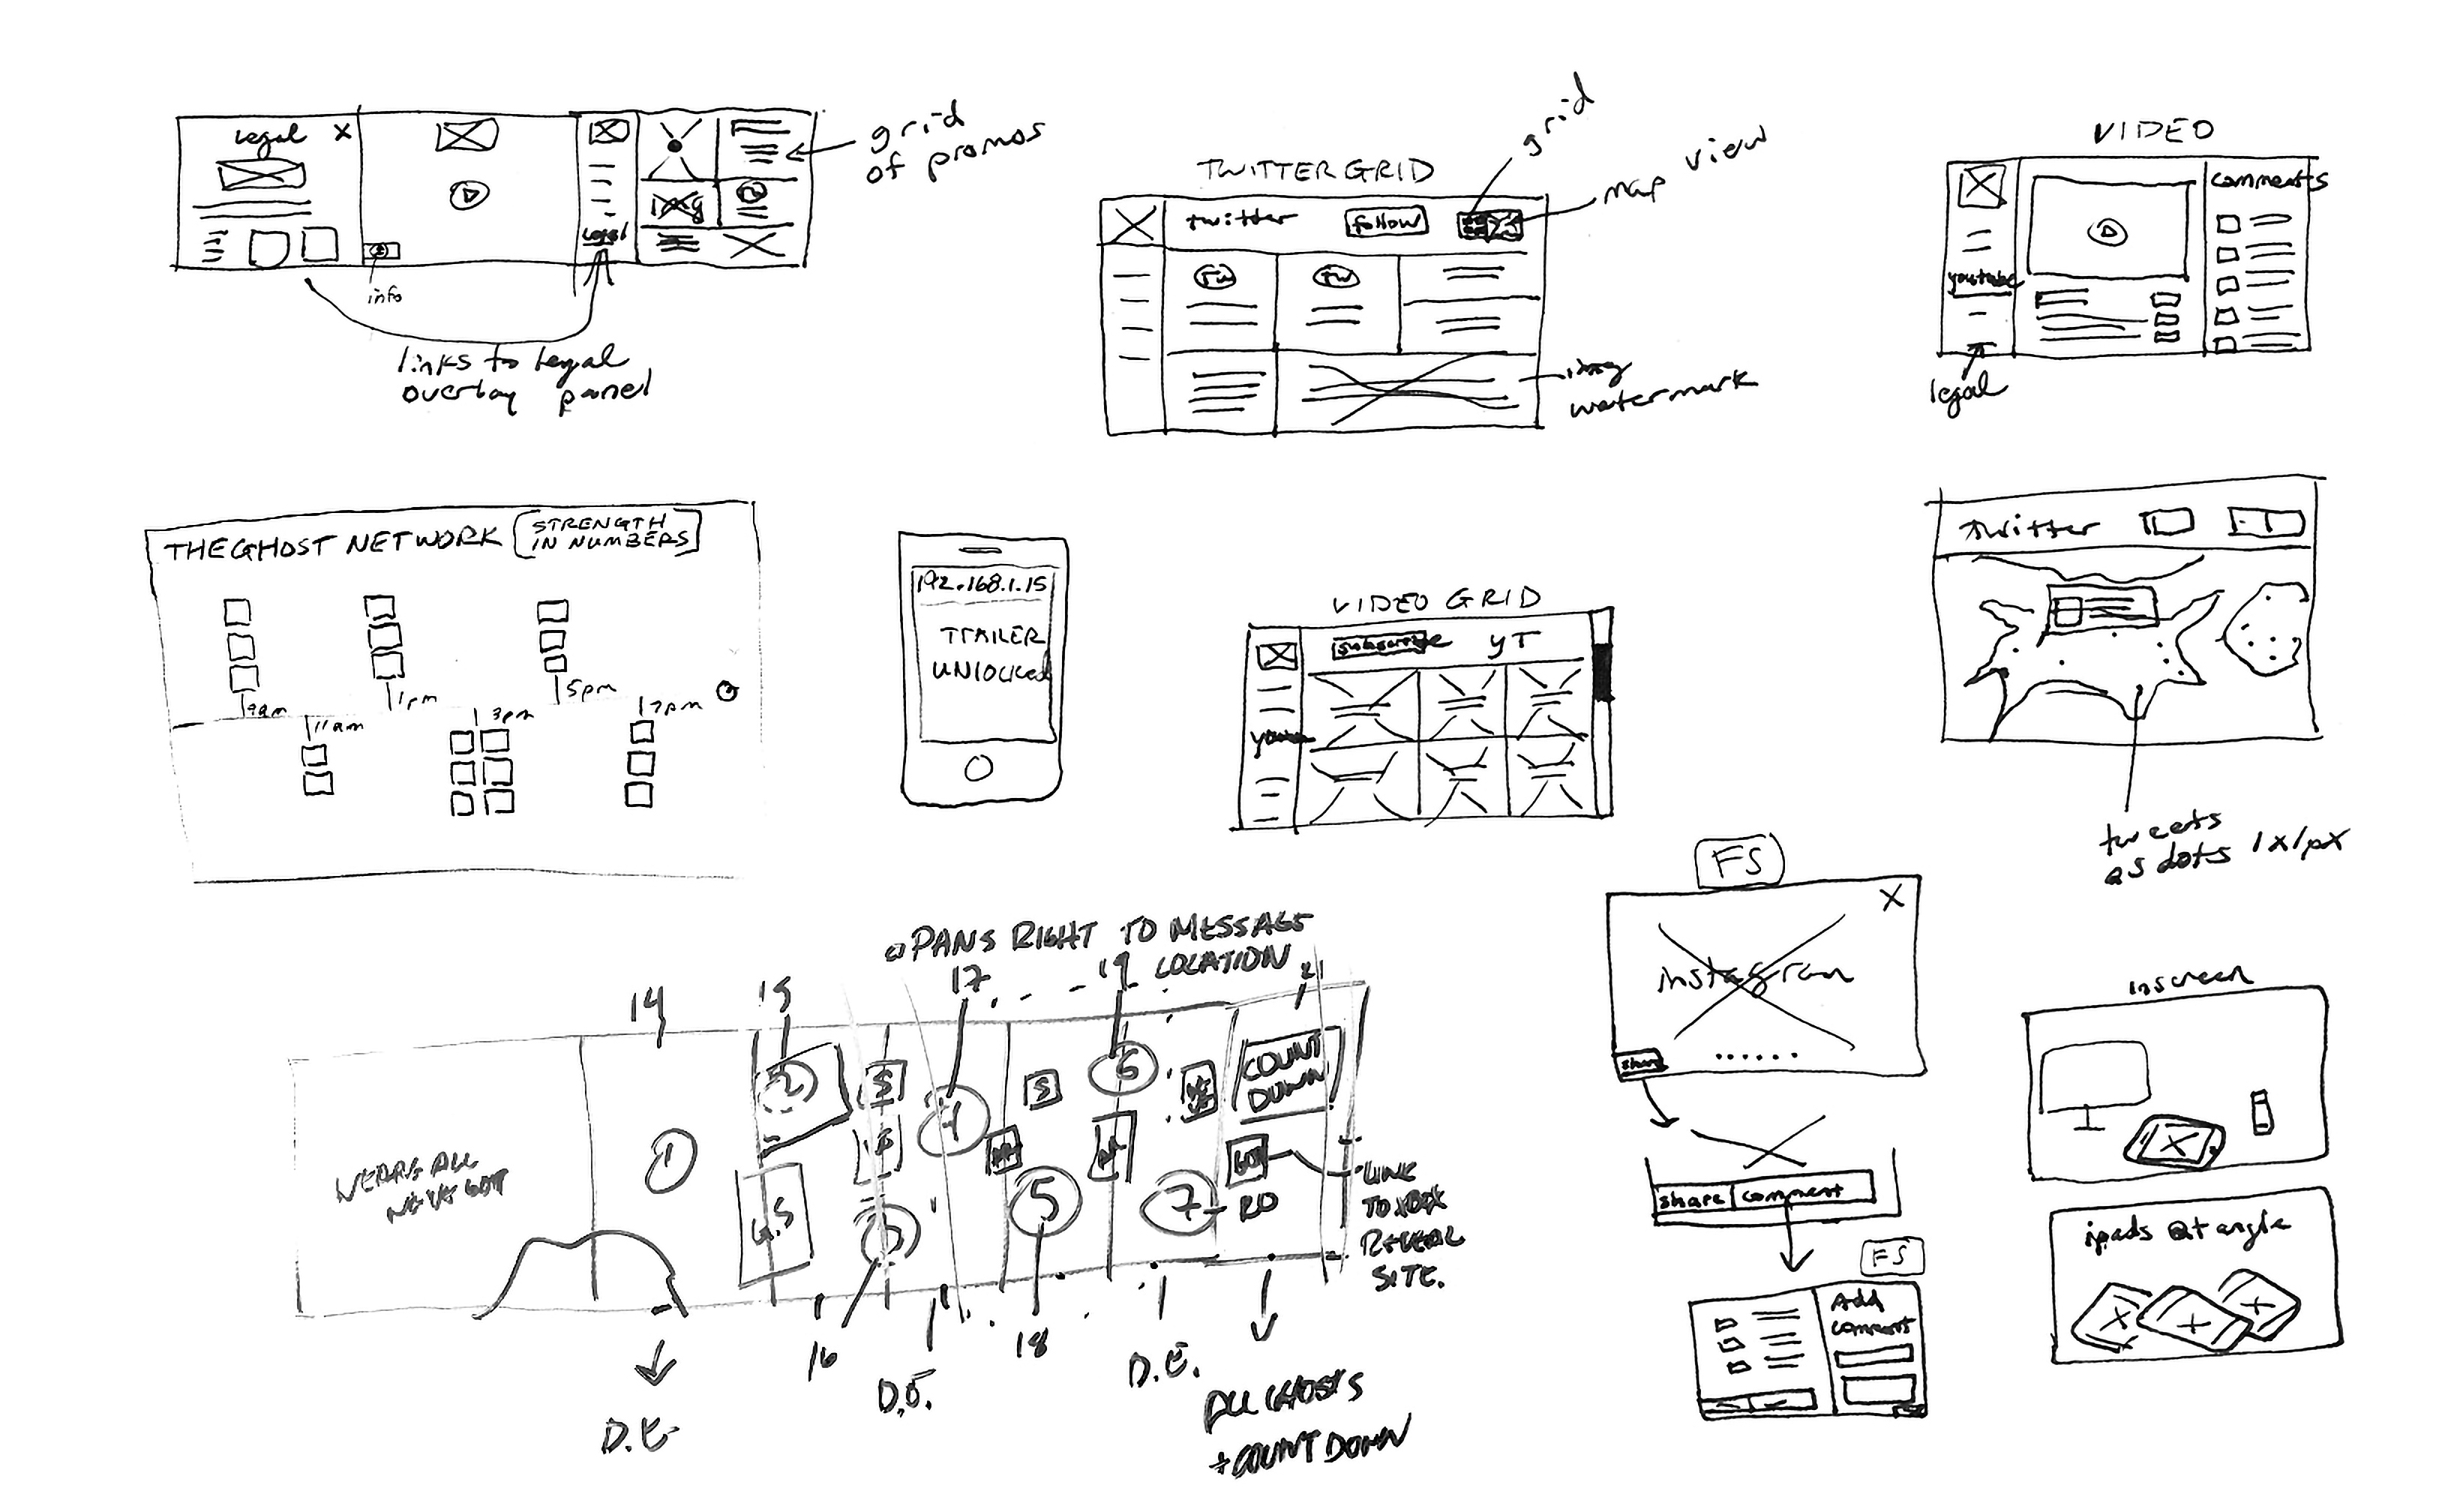 legal X
info
legal
grid
of promos
links to legal
overlay panel
TWITTER GRID
grid
map view
twitter
follow
TW
TW
img
watermark
VIDEO
comments
youtube
legal
THE GHOST NETWORK
STRENGTH
IN NUMBERS
9am
11am
1pm
3pm
5pm
7pm
192.168.1.15
TRAILER
UNLOCKED
VIDEO GRID
subscribe
YT
twitter
tweets
as dots 1x1px
PANS RIGHT TO MESSAGE
LOCATION
14
15
17
19
21
WE ARE ALL
1
2
S
4
S
6
COUNT
DOWN
G.S
3
5
7
GO
RD
LINK
TO XBOX
REVEAL
SITE.
16
18
D.E.
D.E.
D.E.
ALL GHOSTS
+ COUNTDOWN
FS
X
instagram
share
share
comment
FS
Add
comment
inscreen
ipads @ angle